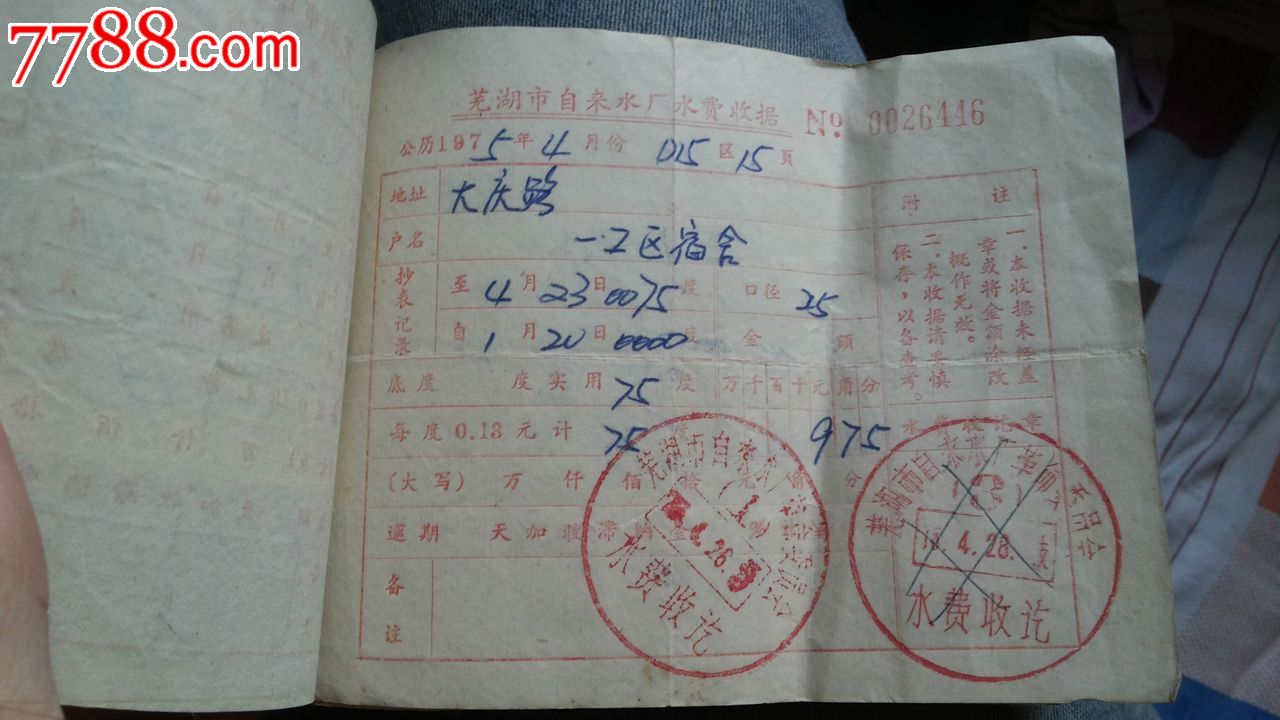 7788.com
芜湖市自来水厂水费收据 No. 0026446
公历1975年4月份 015区15页
地址 大庆路
户名 一工区宿舍
抄表记录
至4月23日0075度 口径25
自1月20日0000度 金额
底度 度实用75度 万千百十元角分
每度0.13元计 75度 975
(大写) 万仟佰拾元角分
逾期 天加收滞纳金
备注
附注
一.本收据未经盖
章或将金额涂改
概作无效。
二.本收据请妥慎
保存,以备查考。
芜湖市自来水厂革命委员会
4.26
水费收讫
芜湖市自来水厂革命委员会
4.28
水费收讫